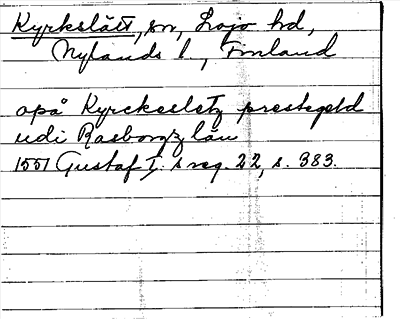 Kyrkslätt, sn, Lojo hd,
Nylands l., Finland
opå Kyrckesletz prestegeld
udi Rasborgz län
1551 Gustaf I:s reg. 22, s. 383.